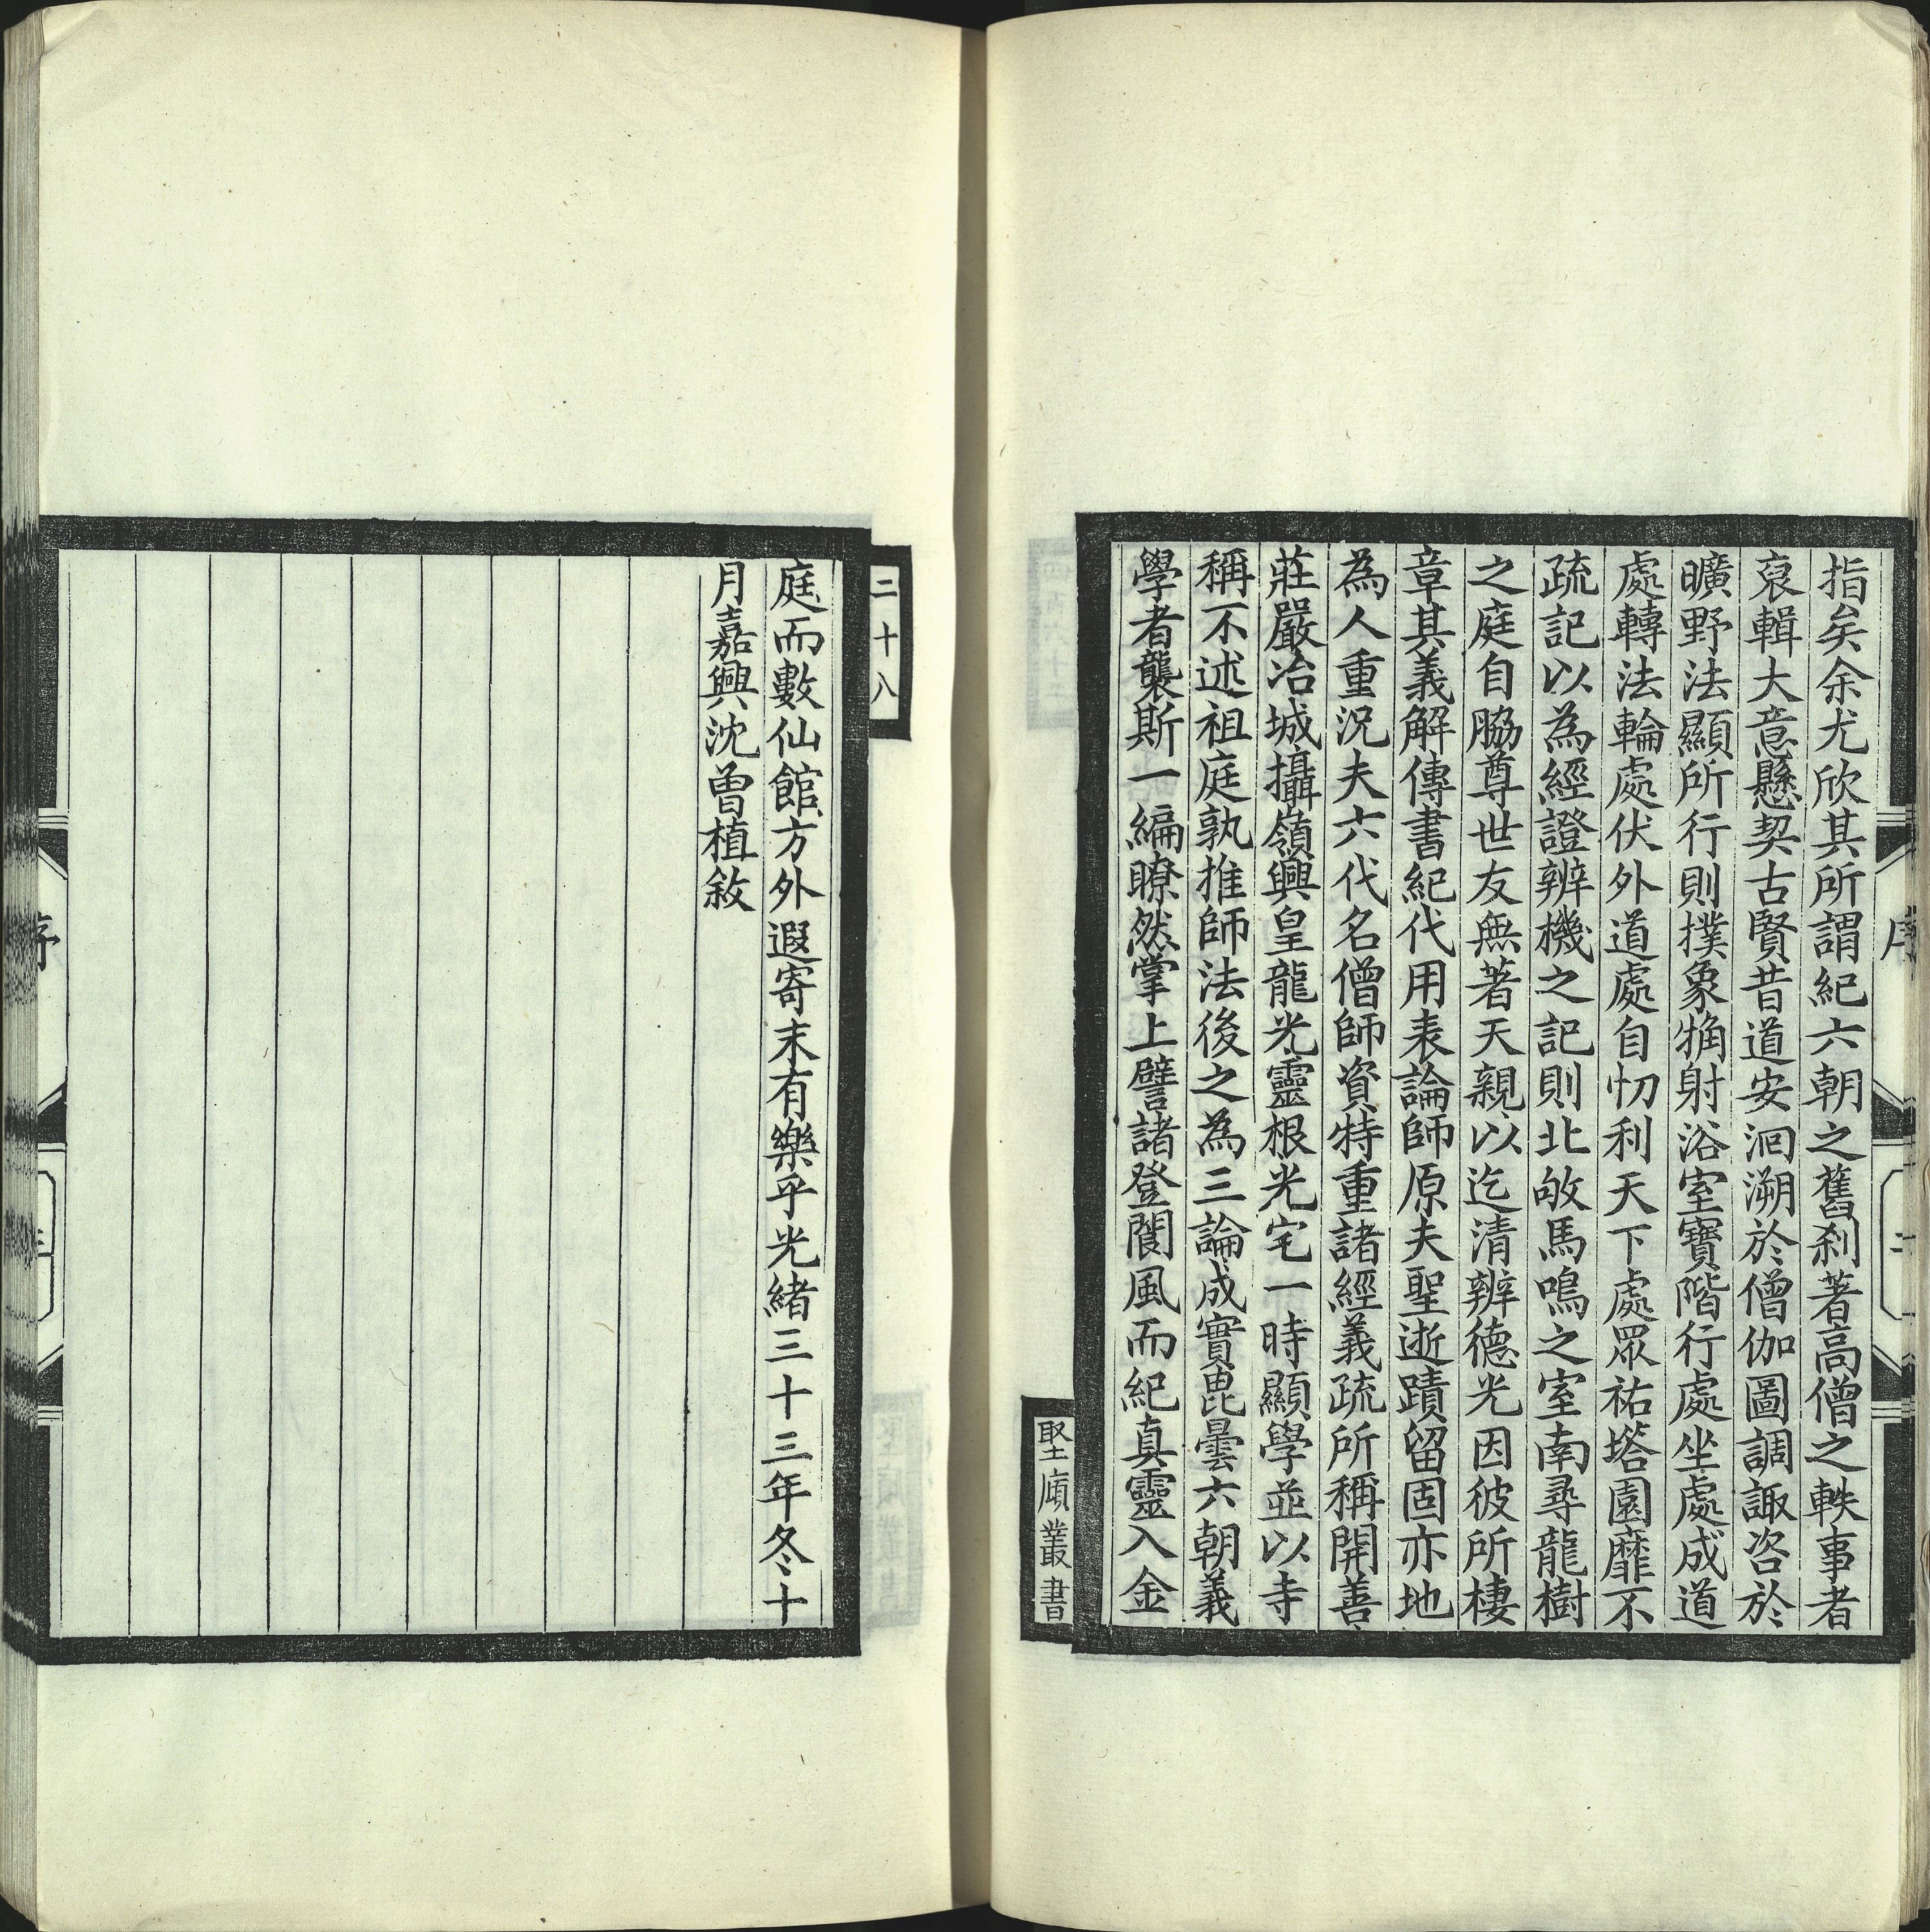 指矣余尤欣其所謂紀六朝之舊刹著高僧之軼事者
裒輯大意懸契古賢昔道安洄溯於僧伽圖調諏咨於
曠野法顯所行則撲象捔射浴室寶階行處坐處成道
處轉法輪處伏外道處自忉利天下處眾祐塔園靡不
疏記以為經證辨機之記則北敂馬鳴之室南尋龍樹
之庭自脇尊世友無著天親以迄清辨德光因彼所棲
章其義解傳書紀代用表論師原夫聖逝蹟留固亦地
為人重況夫六代名僧師資特重諸經義疏所稱開善
莊嚴冶城攝嶺興皇龍光靈根光宅一時顯學並以寺
稱不述祖庭孰推師法後之為三論成實毘曇六朝義
學者襲斯一編瞭然掌上譬諸登閬風而紀真靈入金
堅匏叢書
二十八
庭而數仙館方外遐寄末有樂乎光緒三十三年冬十
月嘉興沈曾植敘
序